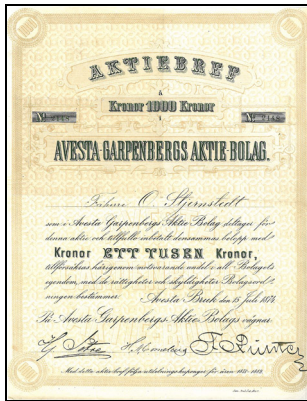 AKTIEBREF
Å
Kronor 1000 Kronor
i
AVESTA-GARPENBERGS AKTIE-BOLAG.
Friherre O. Stjernstedt
som i Avesta Garpenbergs Aktie-Bolag deltager för
denna aktie och tillfullo inbetalt densammas belopp med
Kronor ETT TUSEN Kronor,
tillförsäkras härigenom motsvarande andel i all Bolagets
egendom, med de rättigheter och skyldigheter Bolagsord-
ningen bestämmer. Avesta Bruk den 15 Juli 1874.
På Avesta-Garpenbergs-Aktie-Bolags vägnar
Med detta aktiebref följa utdelningskuponger för åren